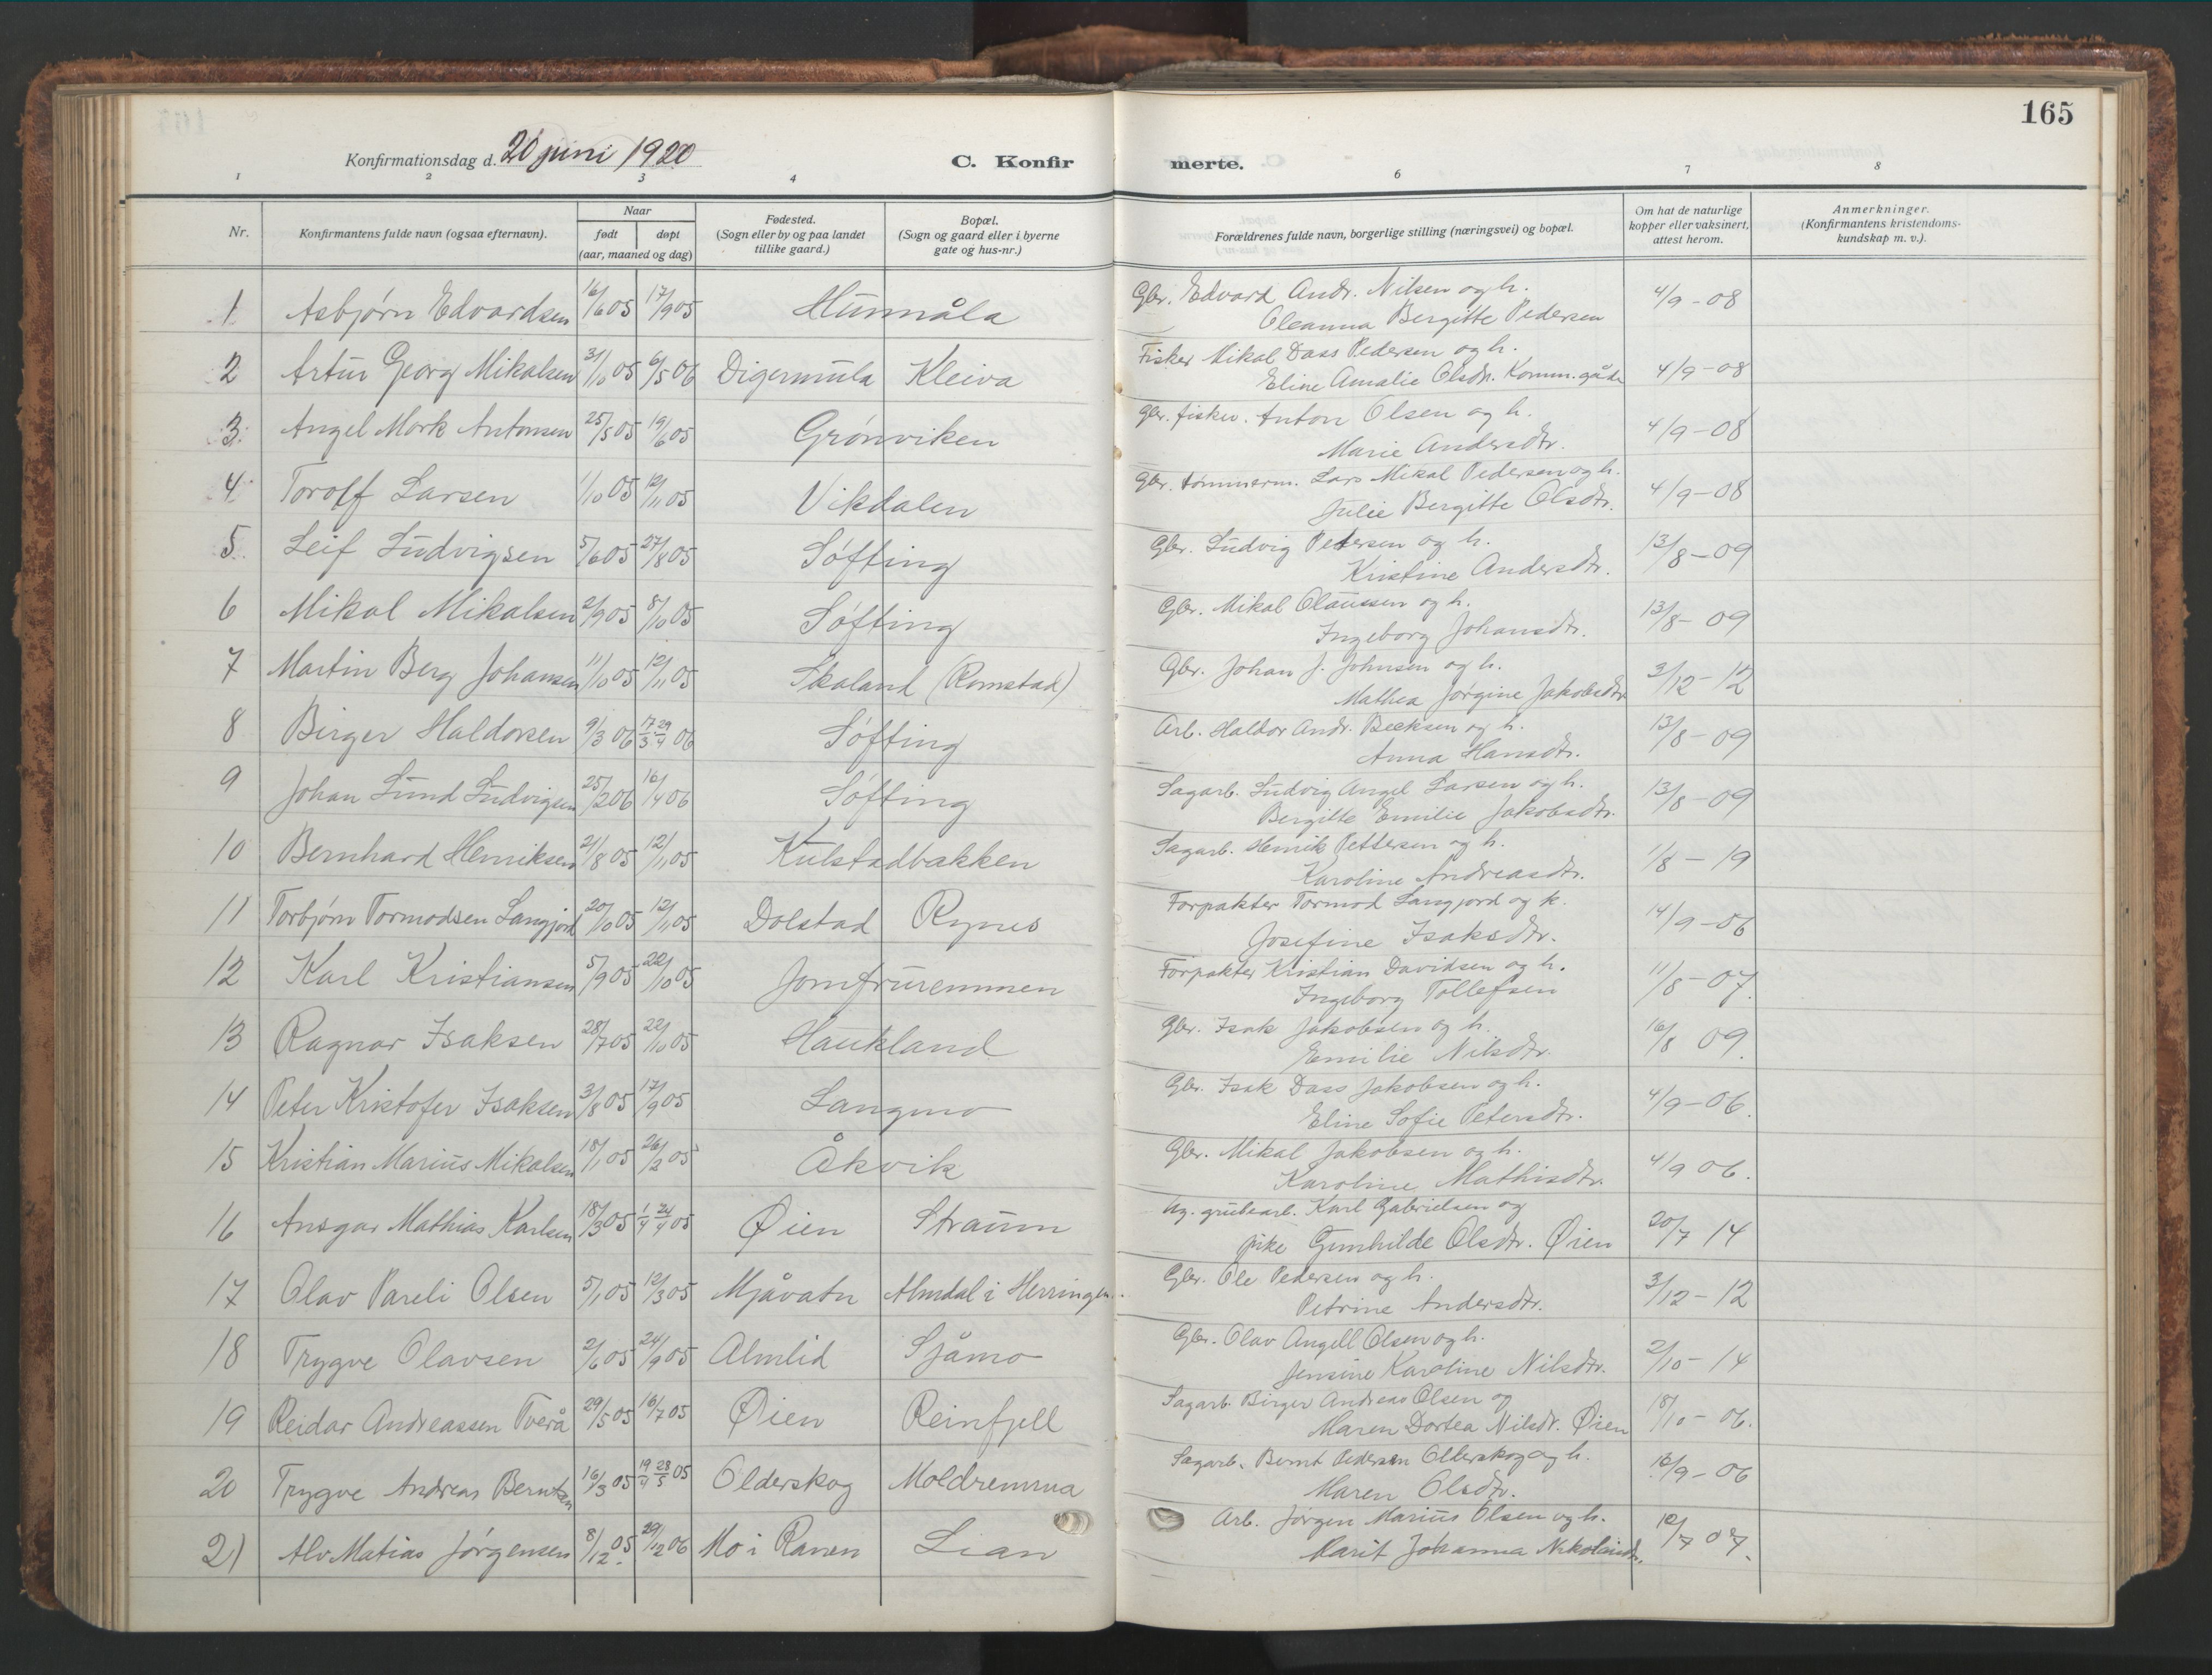 165
Konfirmationsdag d. 20 juni 1920
C. Konfirmerte.
1 2 3 4 6 7 8
Nr.
Konfirmantens fulde navn (ogsaa efternavn).
Naar
født døpt
(aar, maaned og dag)
Fødested.
(Sogn eller by og paa landet
tillike gaard.)
Bopæl.
(Sogn og gaard eller i byerne
gate og hus-nr.)
Forældrenes fulde navn, borgerlige stilling (næringsvei) og bopæl.
Om hat de naturlige
kopper eller vaksinert,
attest herom.
Anmerkninger.
(Konfirmantens kristendoms-
kundskap m. v.).
1 Asbjørn Edvardsen 16/6 05 17/9 05 Hunnåla Gbr. Edvard Andr. Nilsen og h. 4/9-08
Oleanna Bergitte Pedersen
2 Artur Georg Mikalsen 31/10 05 6/5 06 Digermula Kleiva Fisker Mikal Dass Pedersen og h. 4/9-08
Eline Amalie Olsdtr. Komm.gåde
3. Angel Mork Antonsen 25/5 05 19/6 05 Grønviken Gbr. fisker. Anton Olsen og h. 4/9-08
Marie Andersdtr.
4. Torolf Larsen 1/10 05 12/11 05 Vikdalen Gbr. tømmerm. Lars Mikal Pedersen og h. 4/9-08
Julie Bergitte Olsdtr.
5. Leif Ludvigsen 5/6 05 27/8 05 Søfting Gbr. Ludvig Petersen og h. 13/8-09
Kristine Andersdtr.
6 Mikal Mikalsen 2/9 05 8/10 05 Søfting Gbr. Mikal Olaussen og h. 13/8-09
Ingeborg Johansdtr.
7 Martin Berg Johansen 11/10 05 12/11 05 Skaland (Remstad) Gbr. Johan J. Johnsen og h. 3/12-12
Mathea Jørgine Jakobsdtr.
8 Birger Haldorsen 9/3 06 17/3 29/4 06 Søfting Arb. Haldor Andr. Becksen og h. 13/8-09
Anna Hansdtr.
9 Johan Lund Ludvigsen 25/2 06 16/4 06 Søfting Sagarb. Ludvig Angel Larsen og h. 13/8-09
Bergitte Emilie Jakobsdtr.
10 Bernhard Henriksen 21/8 05 12/11 05 Kulstadbakken Sagarb. Henrik Pettersen og h. 1/8-19
Karoline Andreasdtr.
11 Torbjørn Tormodsen Langjord 20/10 05 12/11 05 Dolstad Rynes Forpakter Tormod Langjord og k. 14/9-06
Josefine Isaksdtr.
12 Karl Kristiansen 5/9 05 22/10 05 Jomfruremmen Forpakter Kristian Davidsen og h. 11/8-07.
Ingeborg Tollefsen
13 Ragnar Isaksen 28/7 05 22/10 05 Haukland Gbr. Isak Jakobsen og h. 16/8 09.
Emilie Nilsdtr.
14 Peter Kristofer Isaksen 3/8 05 17/9 05 Langmo Gbr. Isak Dass Jakobsen og h. 4/9-06.
Eline Sofie Petersdtr.
15 Kristian Marius Mikalsen 18/1 05 26/2 05 Åkvik Gbr. Mikal Jakobsen og h. 4/9 06.
Karoline Mathisdtr.
16 Ansgar Mathias Karlsen 18/3 05 1/4 24/4 05 Øien Straum Ug. grubearb. Karl Gabrielsen og 20/7 14
pike Gunhilde Olsdtr. Øien
17 Olav Pareli Olsen 5/1 05 12/3 05 Mjåvatn Almdal i Herringen. Gbr. Ole Pedersen og h. 3/12-12
Petrine Andersdtr.
18 Trygve Olavsen 2/6 05 24/9 05 Almlid Sjåmo Gbr. Olav Angell Olsen og h. 2/10-14
Jensine Karoline Nilsdtr.
19 Reidar Andreassen Tverå 29/5 05 16/7 05 Øien Reinfjell Sagarb. Birger Andreas Olsen og 18/10-06.
Maren Dortea Nilsdtr. Øien
20 Trygve Andreas Berntsen 16/3 05 19/4 28/5 05 Olderskog Moldremma Sagarb. Bernt Pedersen Olderskog og h. 16/9-06
Maren Olsdtr.
21 Alv Matias Jørgensen 8/12 05. 29/12 06 Mo i Ranen Lian Arb. Jørgen Marius Olsen og h. 12/7 07.
Marit Johanna Nikolaisdtr.